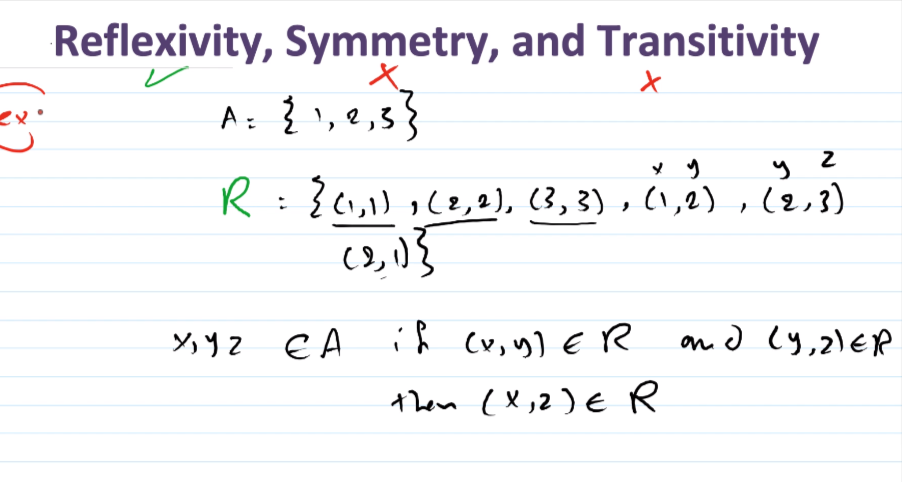 Reflexivity, Symmetry, and Transitivity
✓ ✗ ✗
ex: A = { 1, 2, 3 }
x y y z
R = { (1,1) , (2,2), (3,3) , (1,2) , (2,3)
(2,1) }
x, y z ∈ A if (x, y) ∈ R and (y, z) ∈ R
then (x, z) ∈ R